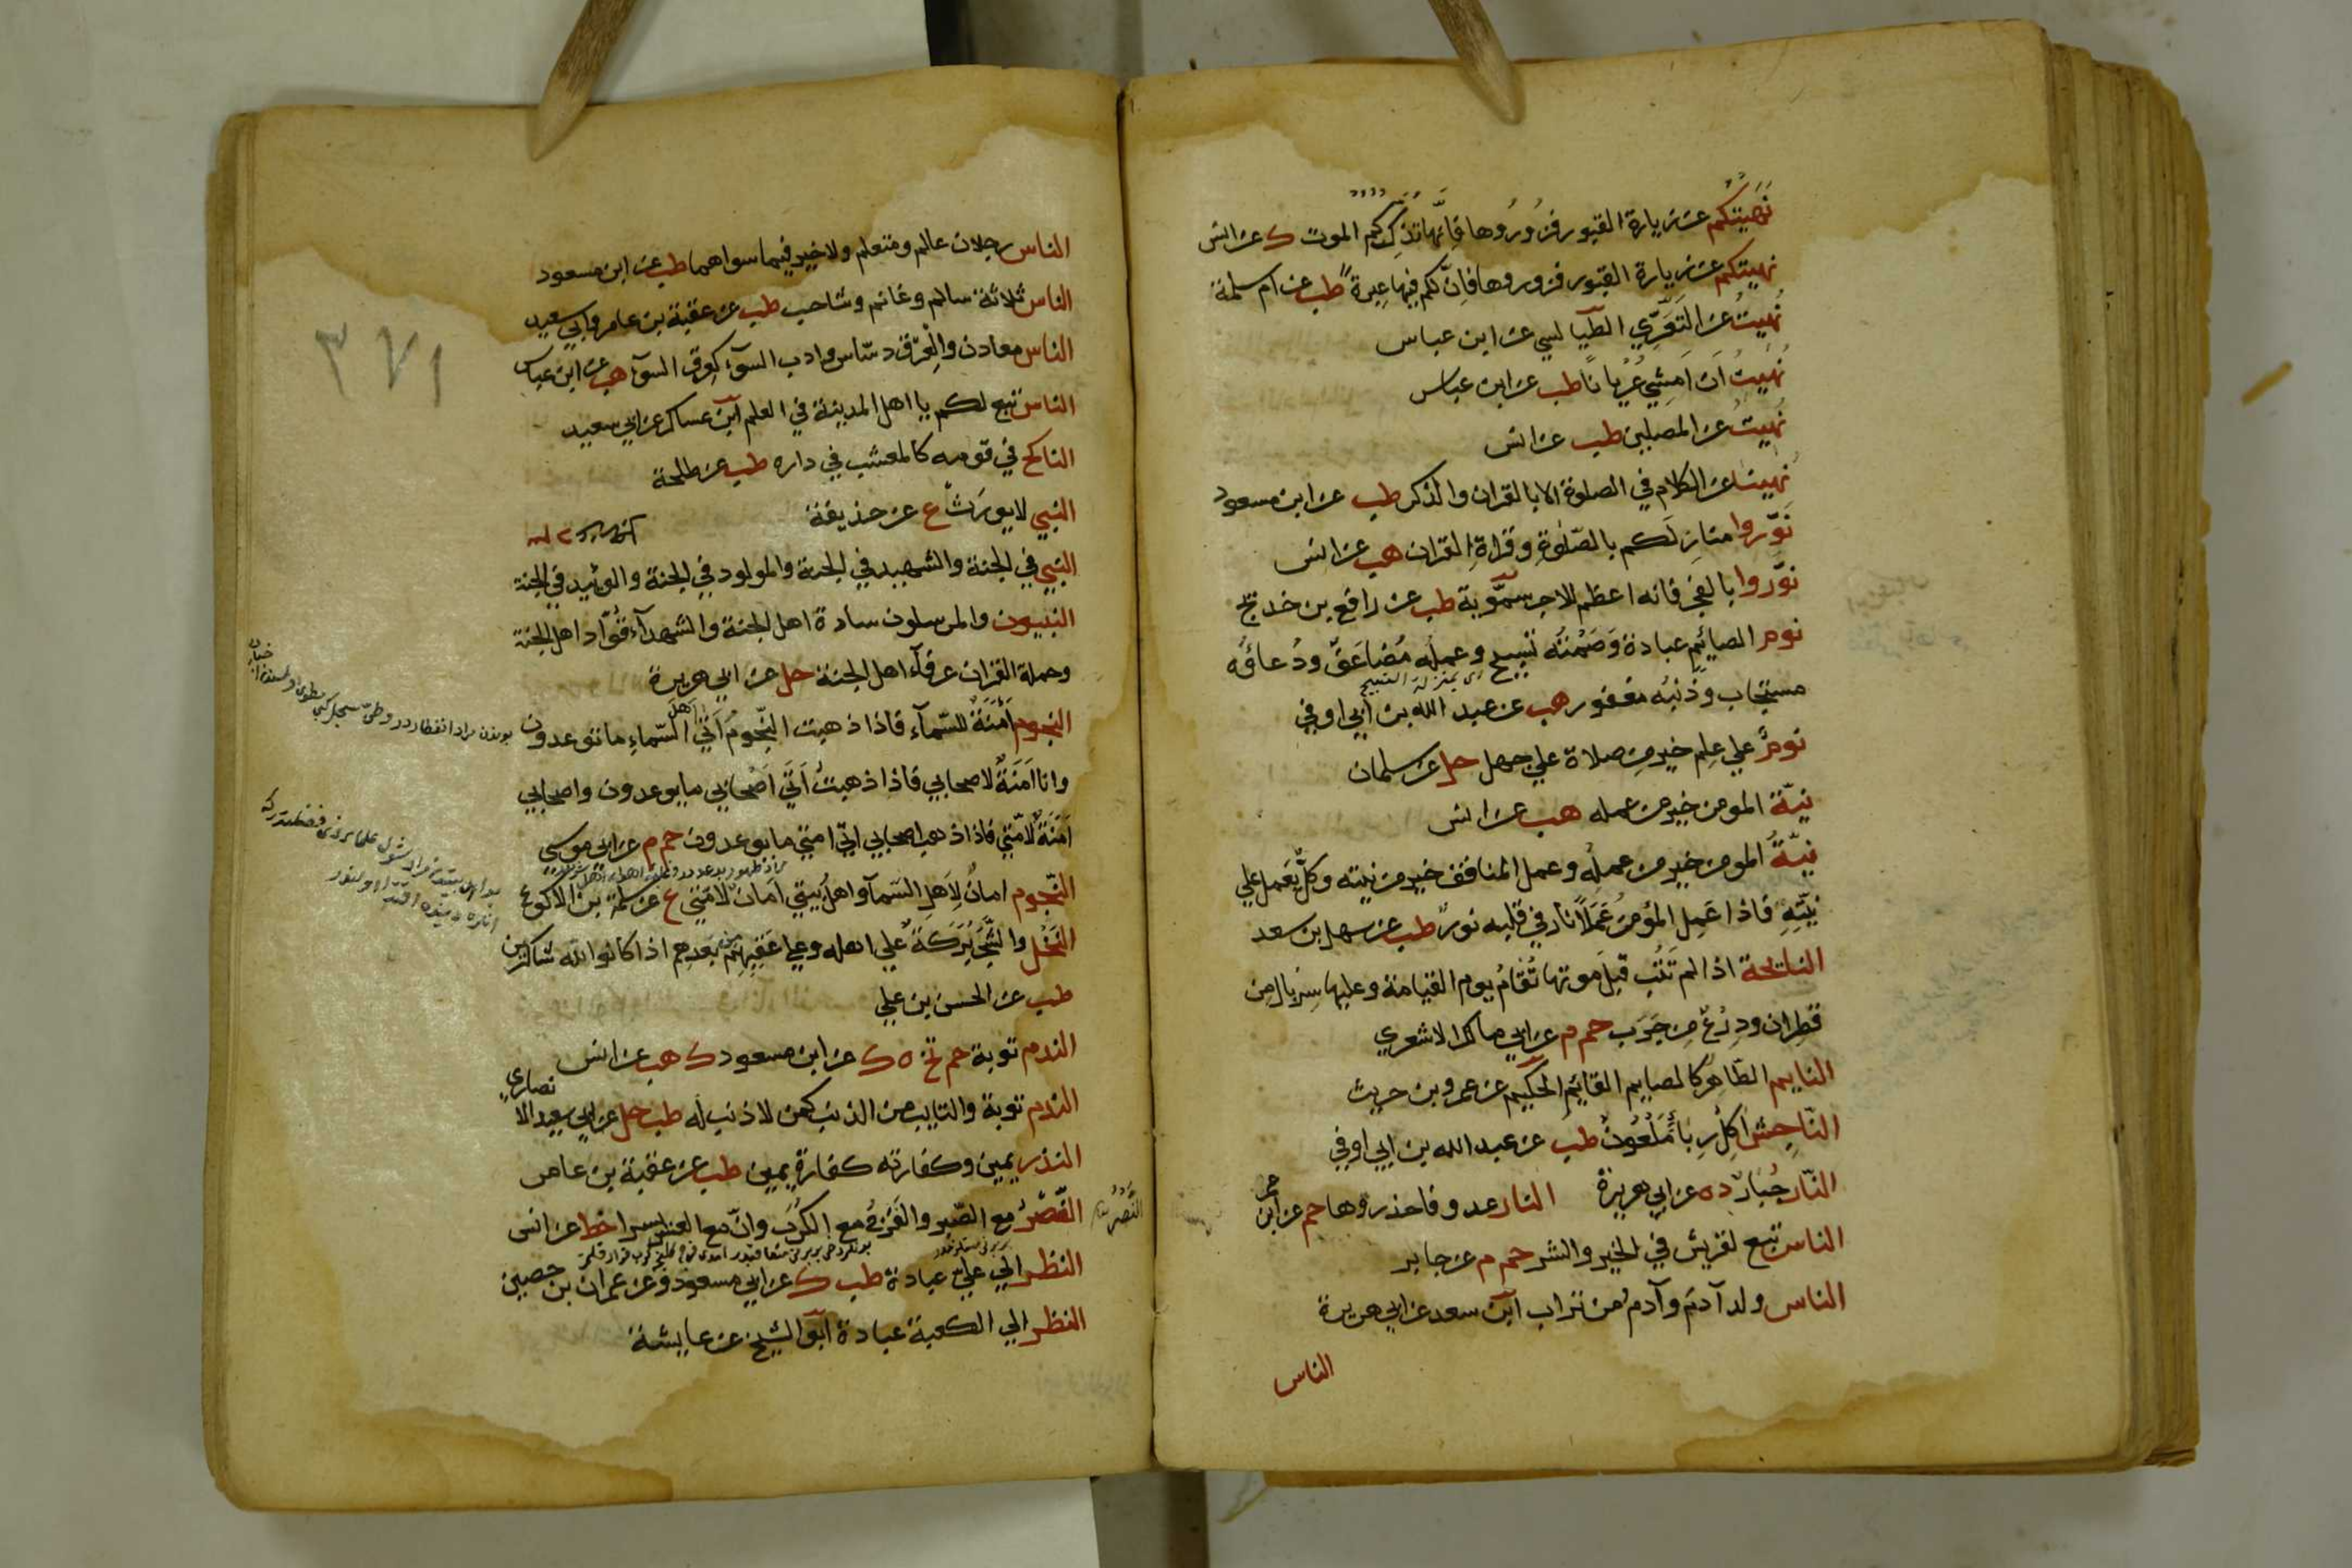 نَهَيتكُم عن زيارة القبور فزُورُوها فَإنَّها تذَكِّركُم الموت ك عن انس
نهيتكم عن زيارة القبور فزوروها فاِنّ لكم فيها عِبرةً طب عن ام سلمة
نُهيتُ عن التَعَرِّي الطَّيالسي عن ابن عباس
نُهيتُ اَن اَمشِي عُريانًا طب عن ابن عباس
نُهيتُ عن المصلين طب عن انس
نُهيت عن الكلام في الصلوة الا بالقران والذكر طب عن ابن مسعود
نَوّروا منازلَكم بالصّلوةِ وقراةِ القران هب عن انس
نوّروا بالفجر فانه اعظم للاجر سمّوية طب عن رافع بن خديج
نوم الصايِم عبادة وَصَمْتُه تسبيح وعملُه مُضاعَفٌ ودُعاؤُه
اي بمنزلة التسبيح
مستجاب وذنبُه مغفور هب عن عبد الله بن ابي اوفي
نومٌ علي عِلمٍ خير من صلاة علي جهل حل عن سلمان
نيّة المومن خير من عمله هب عن انس
نيّةُ المومن خير من عملِه وعمل المنافق خير من نيته وكلٌّ يَعمل علي
نيّتِهِ فاذا عَمِل المؤمنُ عَمَلاً نار في قلبه نورٌ طب عن سهل بن سعد
النايحة اذا لم تَتُب قبلَ موتها تُقامُ يوم القيامة وعليها سِربال من
قطِران ودِرْعٌ من جَرَب حم م عن ابي مالك الاشعري
النايم الطّاهر كالصايم القايم الحكيم عن عمرو بن حريث
النّاجِش آكِلُ رِباً مَلْعُونٌ طب عن عبد الله بن ابي اوفي
النّار جُبَارٌ د ه عن ابي هريرة النار عدو فاحذروها حم عن ابن
عمر
الناس تبع لقريش في الخير والشر حم م عن جابر
الناس ولد آدم وآدم من تراب ابن سعد عن ابي هريرة
الناس
٣٧١
الناس رجلان عالم ومتعلم ولا خير فيما سواهما طب عن ابن مسعود
الناس ثلاثة سالم وغانم وشاجب طب عن عقبة بن عامر وابي سعيد
الناس معادن والعِرق دسّاس وادب السوء كعِرق السوء هب عن ابن عباس
الناس تبع لكم يا اهل المدينة في العلم ابن عساكر عن ابي سعيد
الناكح في قومه كالمعشب في داره طب عن طلحة
النبي لا يورَثُ ع عن حذيفة
النبي في الجنة والشهيد في الجنة والمولود في الجنة والوئيد في الجنة
النبيون والمرسلون سادة اهل الجنة والشهدآء قُوّاد اهل الجنة
وحملة القران عرفآء اهل الجنة حل عن ابي هريرة
النجوم اَمَنَةٌ للسّمآء فاذا ذهبت النّجومُ اَتَي السّماءِ ما توعدون
اهل
وانا اَمَنَةٌ لاصحابي فاذا ذهبتُ اَتَي اَصْحابي ما يوعدون واصحابي
اَمَنَةٌ لامّتي فاذا ذهب اصحابي اتي امتي ما يوعدون حم م عن ابي موسي
النّجوم امانٌ لاَهلِ السَمآء واهلُ بيتي اَمانٌ لامّتي ع عن سلمة بن الاكوع
النَخْل والشّجَر بَرَكَةٌ علي اهله وعلي عَقِبِهِم بَعدِهم اذا كانوا لله شاكرين
من
طب عن الحسن بن علي
الندم توبة حم تخ ه ك عن ابن مسعود ك هب عن انس
الندم توبة والتايب من الذنب كمن لا ذنب له طب حل عن ابي سعيد الا
نصاري
النذر يمين وكفارته كفارة يمين طب عن عقبة بن عامر
النَّصْرُ مع الصَّبر والفَرَج مع الكَرْبِ وانّ مع العسر يسرا خط عن انس
النَّصْرُ
النظر الي عليٍّ عبادة طب ك عن ابي مسعود وعن عمران بن حصين
النظر الي الكعبة عبادة ابو الشيخ عن عايشة